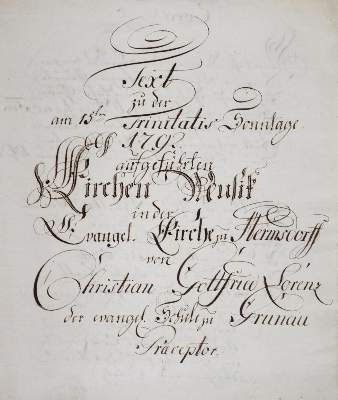 Text
zu der
am 15ten Trinitatis Sonntage
179
aufgeführten
Kirchen Musik
in der
Evangel. Kirche zu Hermsdorff
von
Christian Gottfried Lorenz
der evangel. Schule zu Grunau
Præceptor.